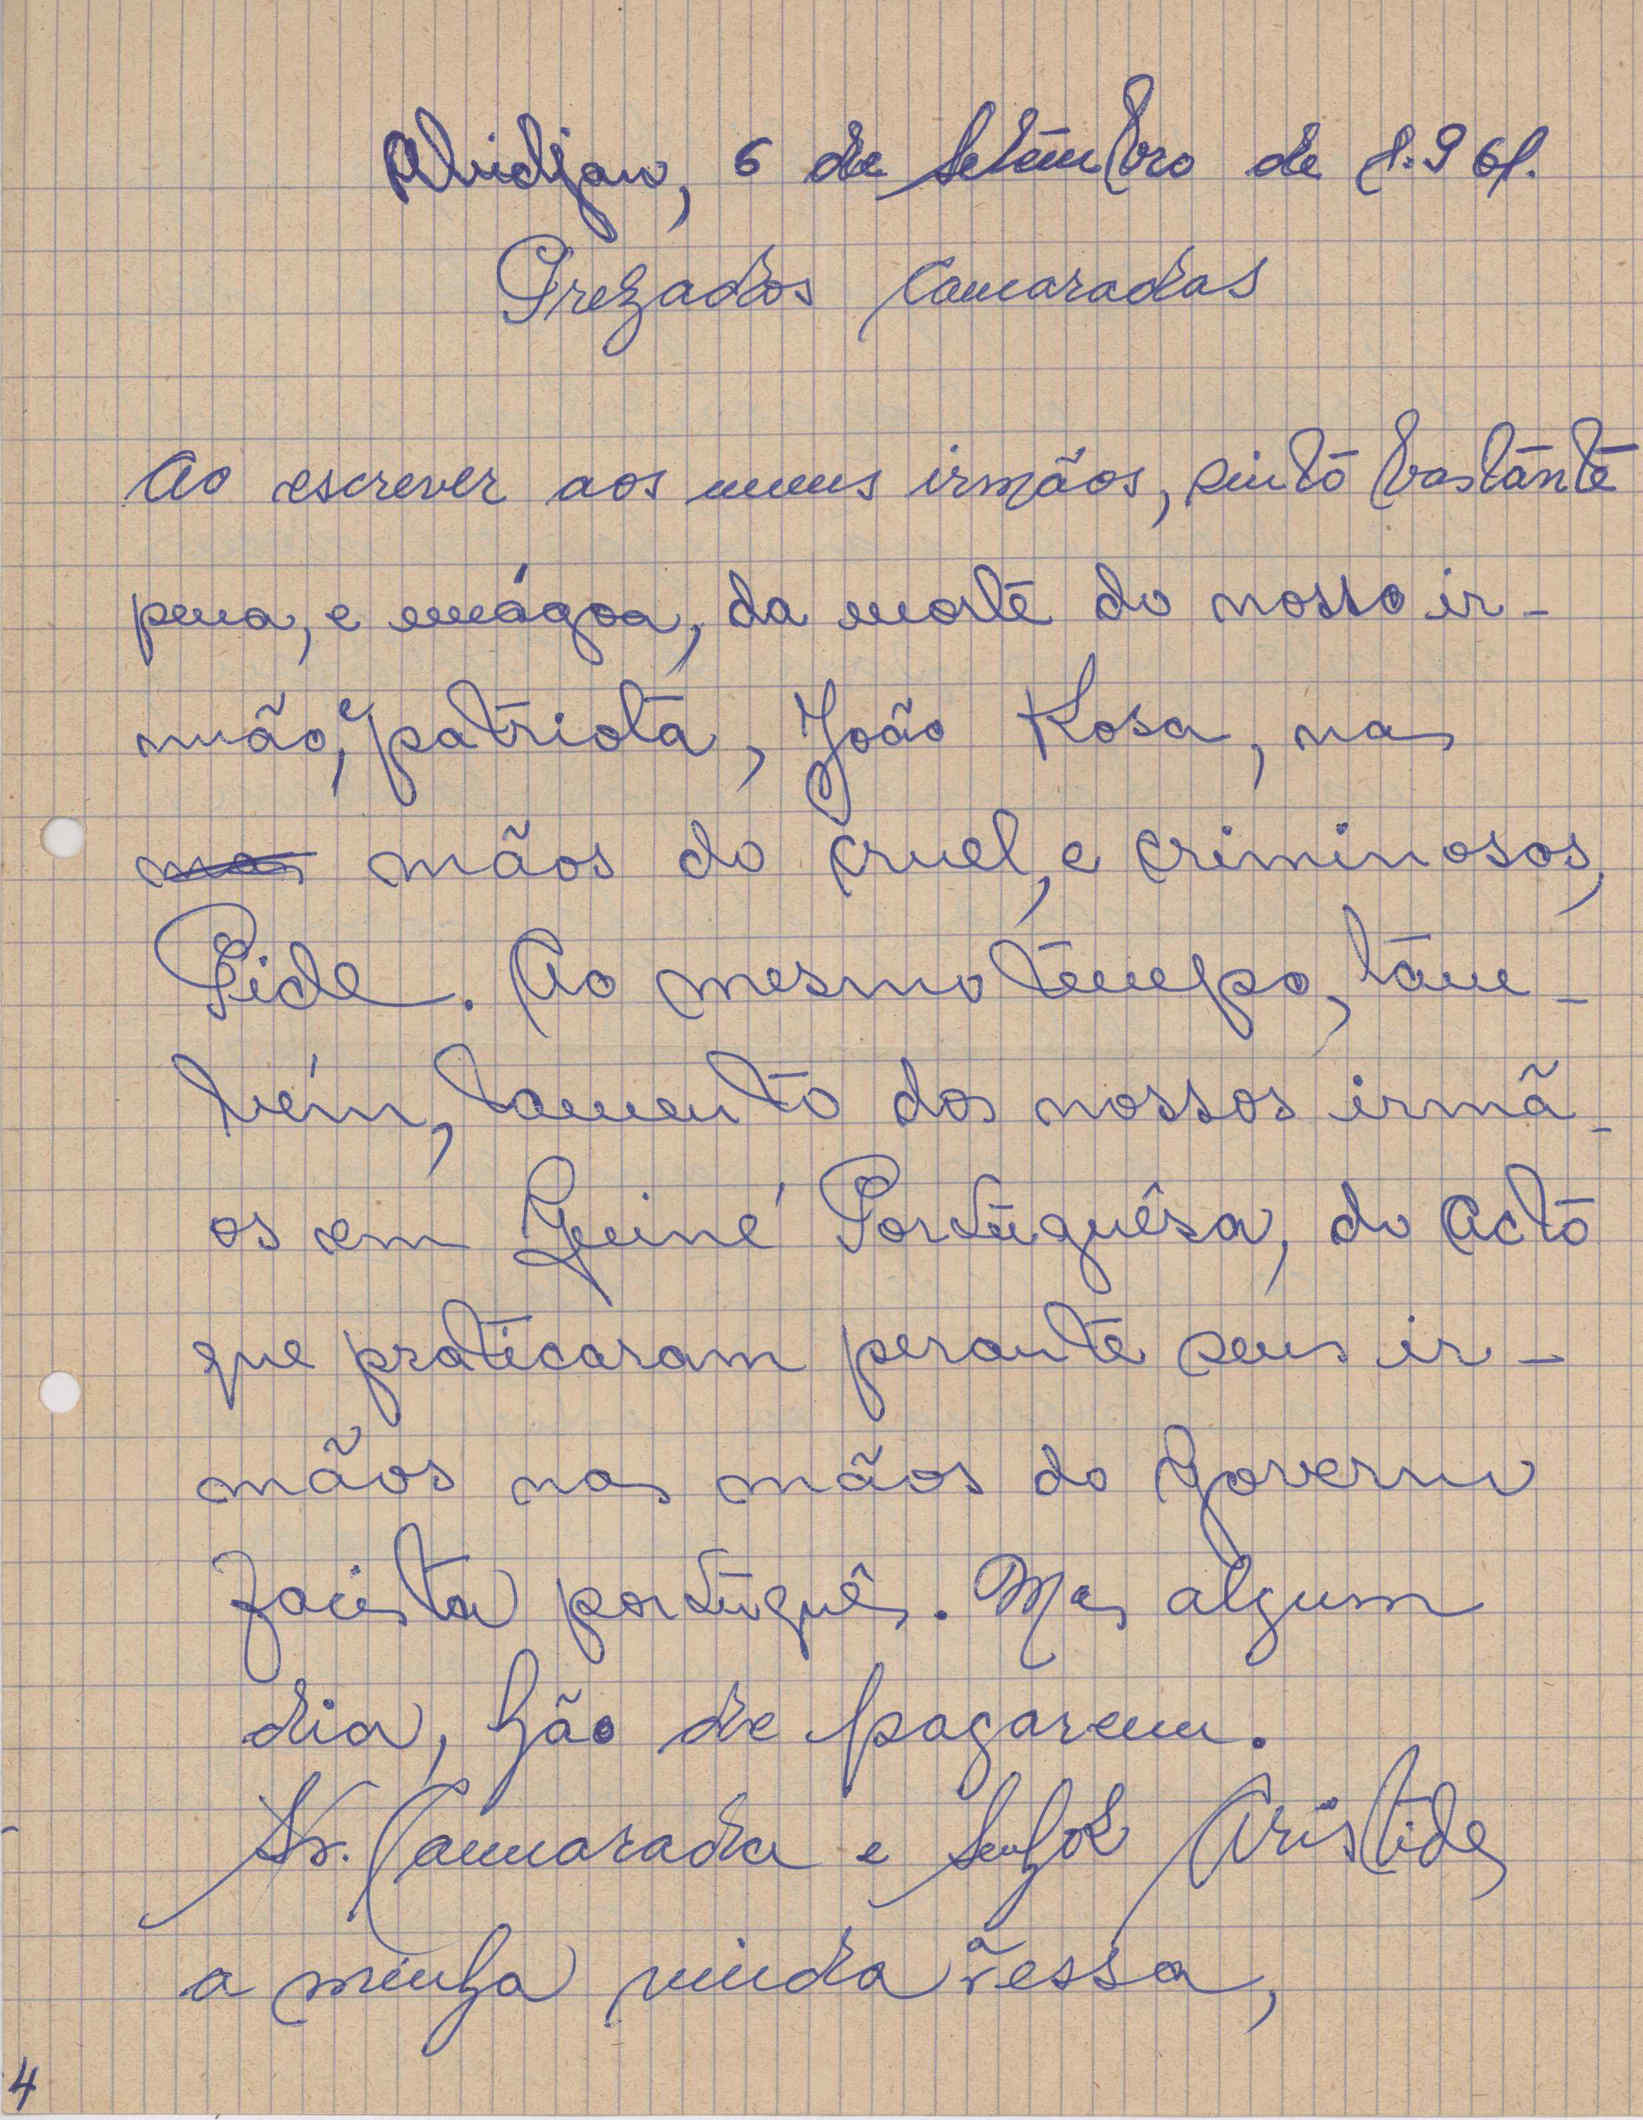 Abidjan, 6 de Setembro de 1.961.
Prezados Camaradas
Ao escrever aos meus irmãos, sinto bastante
pena, e mágoa, da morte do nosso ir-
mão, e patriota, João Rosa, nas
nas mãos do cruel, e criminosos,
Pide. Ao mesmo tempo, tam-
bém, lamento dos nossos irmã-
os em Guiné Portuguêsa, do acto
que praticaram perante seus ir-
mãos nas mãos do Governo
facista português. Mas algum
dia, hão de pagarem.
Sr. Camarada e Senhor Aristides
a minha vinda a essa,
4